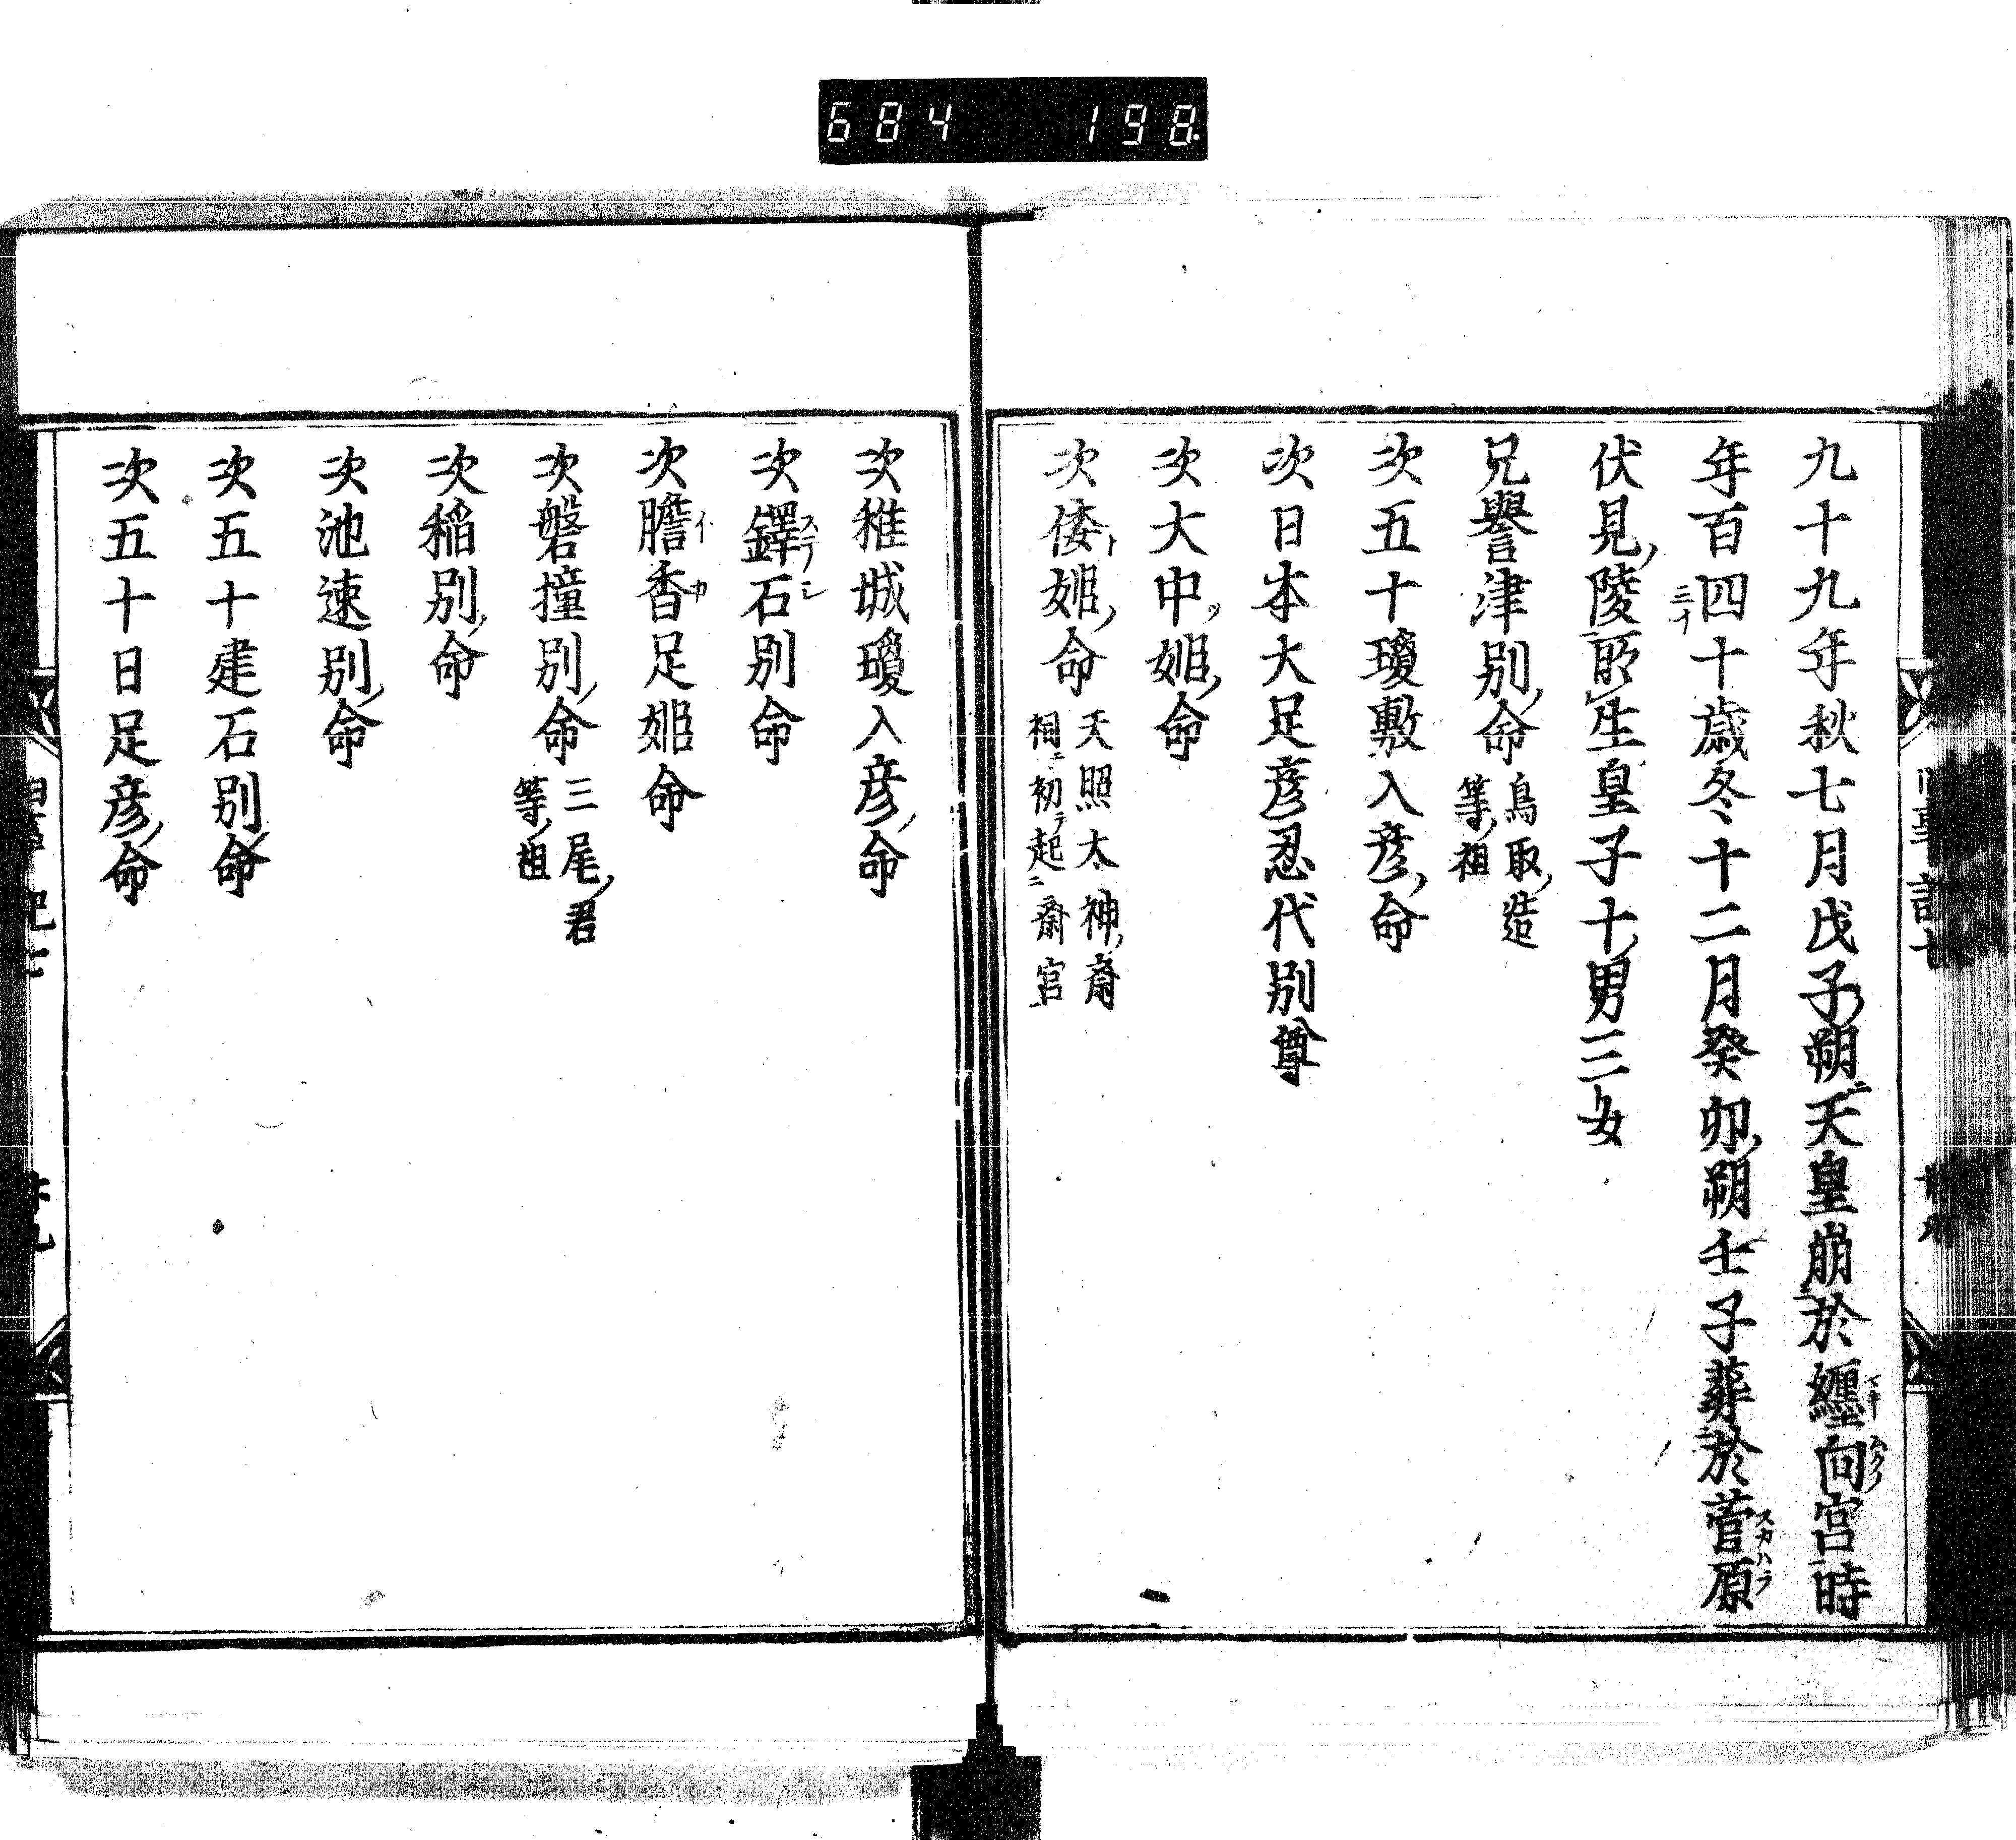 684 198
九十九年秋七月戊子朔天皇崩於纒向宮時
年百四十歳冬十二月癸卯朔壬子葬於菅原
伏見陵所生皇子十男三女
兄譽津別命 鳥取造
等祖
次五十瓊敷入彦命
次日本大足彦忍代別尊
次大中姫命
次倭姫命 天照太神斎
祠初起斎宮
次稚城瓊入彦命
次鐸石別命
次膽香足姫命
次磐撞別命 三尾君
等祖
次稲別命
次池速別命
次五十建石別命
次五十日足彦命